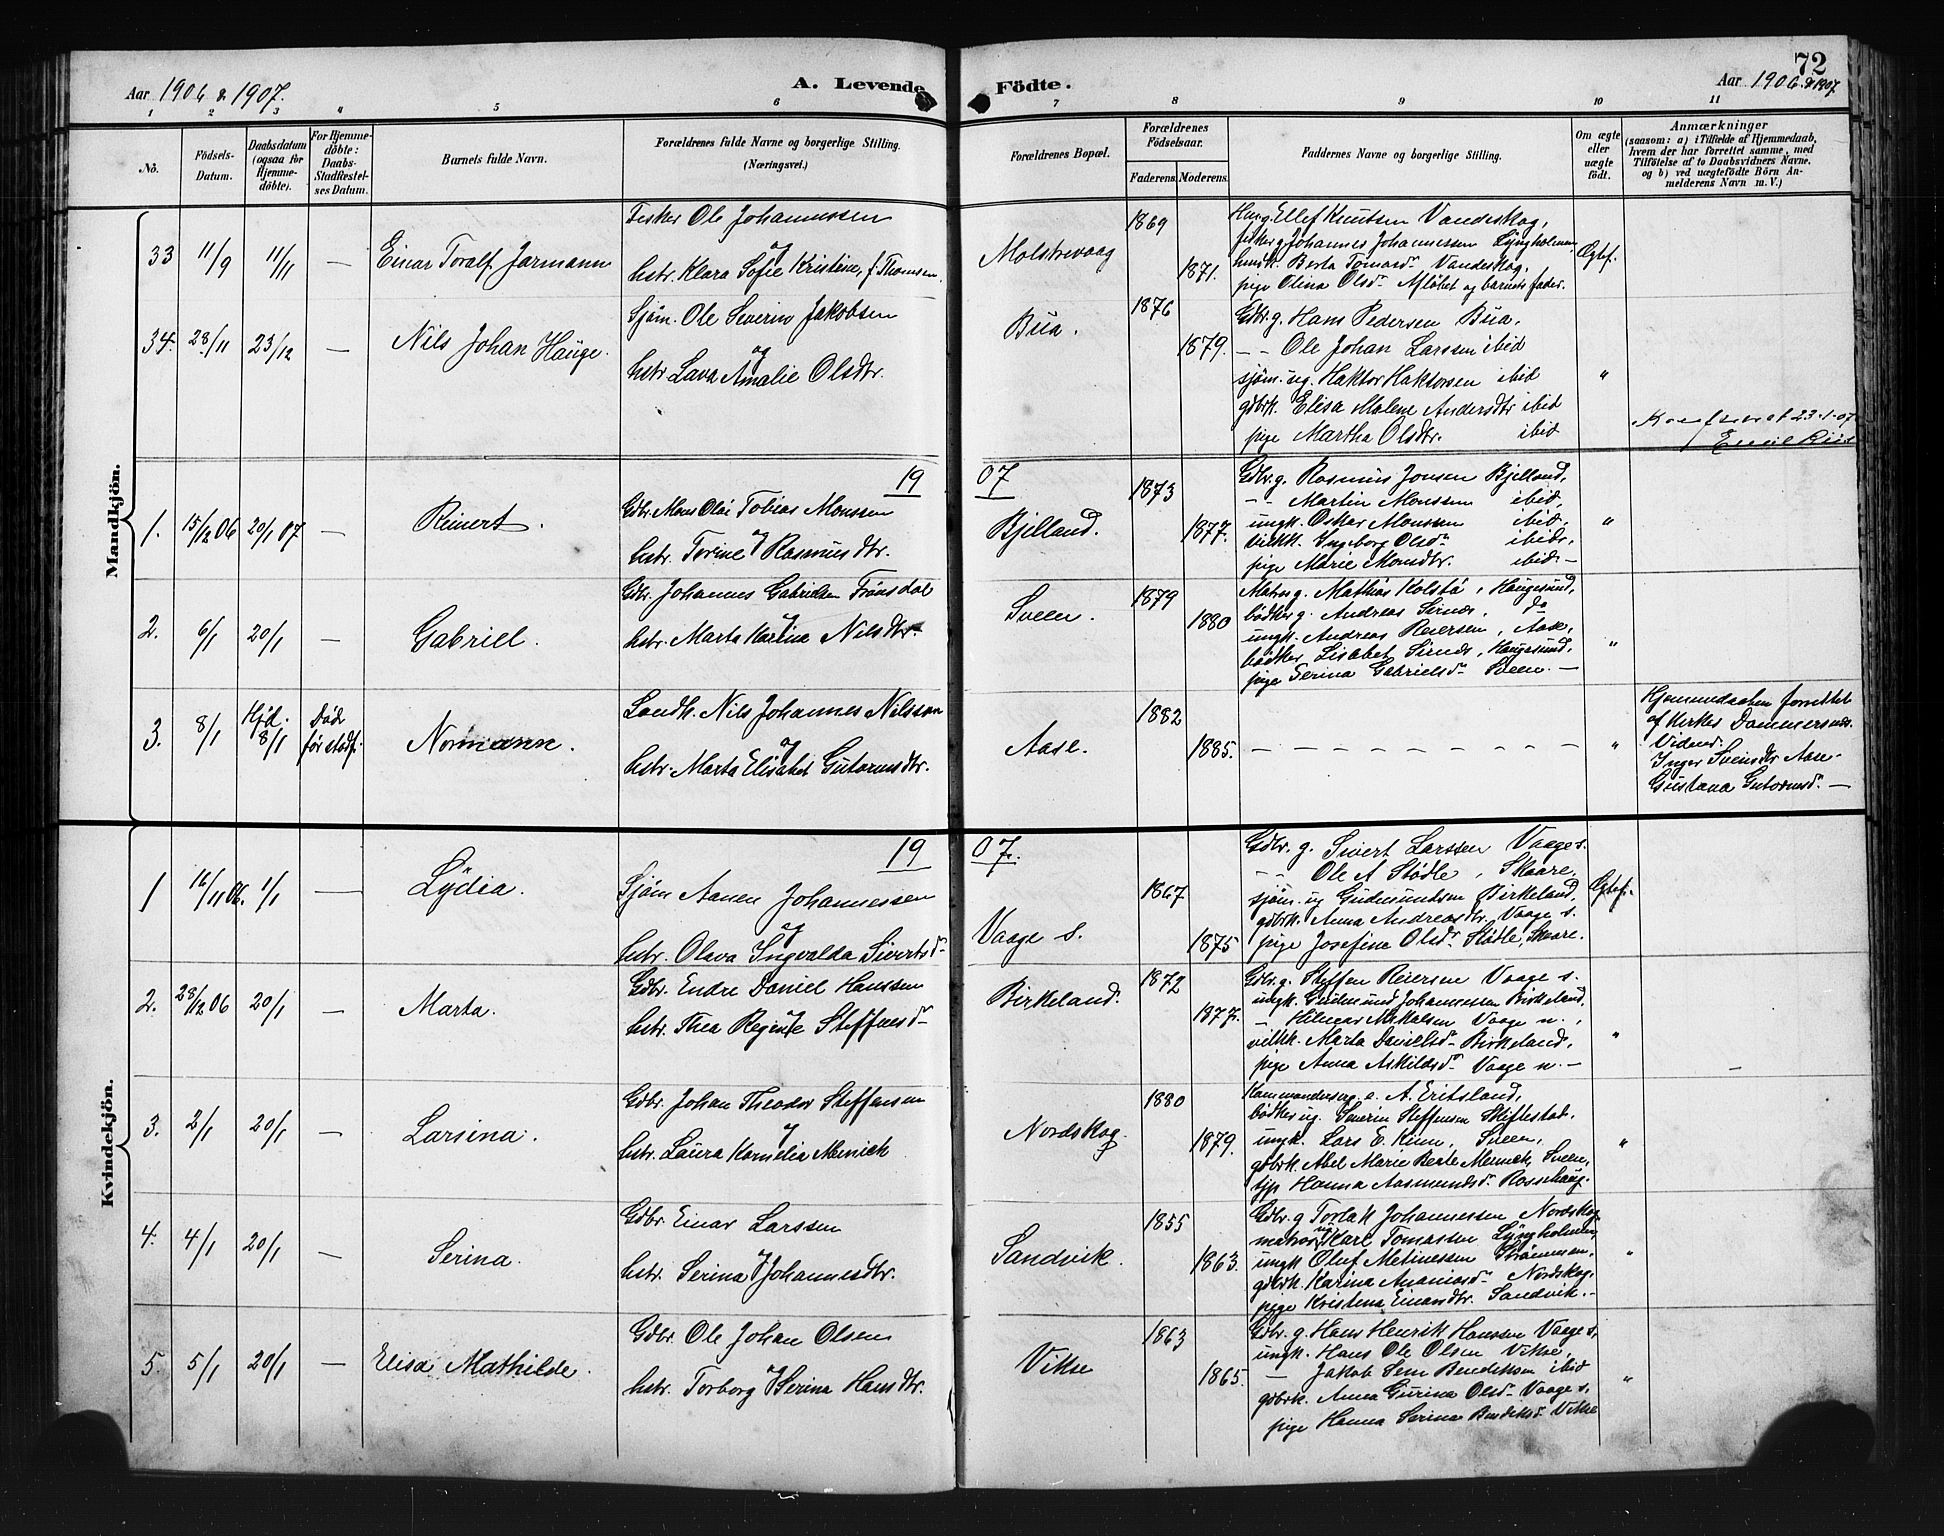 72
Aar 1906 & 1907.
A. Levende Födte.
Aar 1906 & 1907.
1 2 3 4 5 6 7 8 9 10 11
No.
Födsels-Datum.
Daabsdatum (ogsaa for Hjemmedöbte).
For Hjemmedöbte: Daabs-Stadfestelses Datum.
Barnets fulde Navn.
Forældrenes fulde Navne og borgerlige Stilling. (Næringsvei.)
Forældrenes Bopæl.
Forældrenes Födselsaar.
Faderens. Moderens.
Faddernes Navne og borgerlige Stilling.
Om ægte eller uægte födt.
Anmærkninger
(saasom: a) i Tilfælde af Hjemmedaab, hvem der har forrettet samme, med Tilföielse af to Daabsvidners Navne, og b) ved uægtefödte Börn Anmelderens Navn m. V.)
Mandkjön.
33 11/9 11/11 — Einar Toralf Jarmann
Fisker Ole Johannessen
og
hstr. Klara Sofie Kristine, f. Thomsen.
Molstrevaag 1869 1871.
Husg. Ellef Knutsen Vandeskog,
fisker g. Johannes Johannessen Lyngholmen,
husk. Berta Tomasdr Vandeskog,
pige Olina Olsdr Afløbet og barnets fader.
Ægtef.
34. 28/11 23/12 — Nils Johan Hauge.
Sjöm. Ole Severin Jakobsen
og
hstr. Lava Amalie Olsdtr.
Bua. 1876 1879.
Gdbr. g. Hans Pedersen Bua,
— — Ole Johan Larssen ibid
sjöm. ug. Haktor Haktorsen ibid
gdbrk. Elisa Malene Andersdtr ibid
pige Martha Olsdtr. ibid
"
23-1-07
19 07
1. 15/12 06 20/1 07 — Reinert.
Gdbr. Mons Olai Tobias Monssen
og
hstr. Torine Rasmusdtr.
Bjelland. 1873 1877.
Gdbr. g. Rasmus Jonsen Bjelland,
— — Martin Monssen ibid,
ungk. Oskar Monssen ibid,
vilkk. Ingeborg Olsdr ibid,
pige Marie Monsdtr. ibid. —
"
2. 6/1 20/1 — Gabriel.
Gdbr. Johannes Gabrielsen Trönsdal
og
hstr. Marta Karina Nilsdtr.
Sveen. 1879 1880
Matros g. Mathias Kolstö, Haugesund,
bödker g. Andreas Simes, do
ungk. Andreas Reiersen, Aase,
bödker Lisabet Simes, Haugesund,
pige Serina Gabrielsdr Sveen. —
"
3. 8/1 Hjd. 8/1 Död för stadf. Normann.
Landh. Nils Johannes Nilssen
og
hstr. Marta Elisabet Gutormsdtr.
Aase. 1882 1885.
— — — — — — — — —
"
Hjemmedaaben forrettet
af
Vidner:
Inger Svensdtr Aase
Gustava Gutormsdr. —
Kvindekjön.
19 07.
1 16/11 06. 1/1 — Lydia.
Sjöm. Aanen Johannessen
og
hstr. Olava Ingvalda Sivertsdr
Vaage s. 1867 1875
Gdbr. g. Sivert Larssen Vaage s.
— — Ole A Stödle, Skaare,
sjöm. ug Gudmundsen Birkeland,
gdbrk. Anna Andreasdtr. Vaage s.
pige Josefine Olsdr Stödle, Skaare.
Ægtef.
2. 28/12 06 20/1 — Marta.
Gdbr. Endre Daniel Hanssen
og
hstr. Thea Regine Steffensdr
Birkeland. 1872 1877.
Gdbr. g. Steffen Reiersen Vaage s.
ungk. Gudmund Johannessen Birkeland,
— Hilmar Mikalsen Vaage n.,
vilkk. Marta Danielsdr Birkeland,
pige Anna Askildsdr Vaage n. —
"
—
3. 2/1 20/1 — Larsina.
Gdbr. Johan Theodor Steffensen
og
hstr. Laura Kornelia Meinich
Nordskog. 1880 1879.
A. Eritsland,
bödker ug. Severin Steffensen Skiftestad,
ungk. Lars E. Kinn, Sveen,
gdbrk. Abel Marie Beate Meinich, Sveen,
tjp Hanna Aasmundsdr. Rossehaug.
"
4. 4/1 20/1 — Serina.
Gdbr. Einar Larssen
og
hstr. Serina Johannesdtr.
Sandvik. 1855 1863.
Gdbr. g Torlak Johannessen Nordskog
matros ug. Karl Tomassen Lyngholmen,
ungk Oluf Metinessen Strömmen,
gdbrk. Karina Ananiasdr Nordskog,
pige Kristena Einarsdtr. Sandvik. —
"
5. 5/1 20/1 — Elisa Mathilde.
Gdbr. Ole Johan Olsen
og
hstr. Torborg Serina Hansdtr.
Vikse 1863 1865.
Gdbr. g. Hans Henrik Hanssen Vaage s,
ungk. Hans Ole Olsen Vikse,
— Jakob Sem Bendiksen ibid
gdbrk. Anna Gurina Olsdr Vaage s,
pige Hanna Serina Bendiksdr Vikse
"